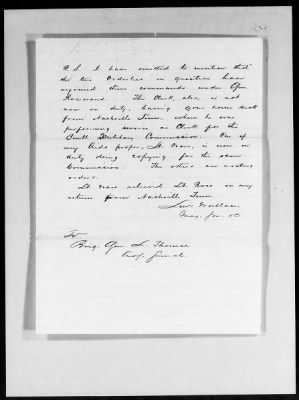 P.S. I have omitted to mention that
the two Orderlies in question have
rejoined their commands under Gen
The Clerk, also, is not
now on duty, having gone home
from Nashville Tenn, where he was
performing service as Clerk for the
Buell Military Commission. One of
my Aids proper, Lt. Ware, is now on
duty doing copying for the same
Commission. The others are waiting
orders.
Lt Ware relieved Lt. Ross on my
return from Nashville Tenn
Lew. Wallace
Maj. Gen. vol
To
Brig. Gen L. Thomas
Adj. General